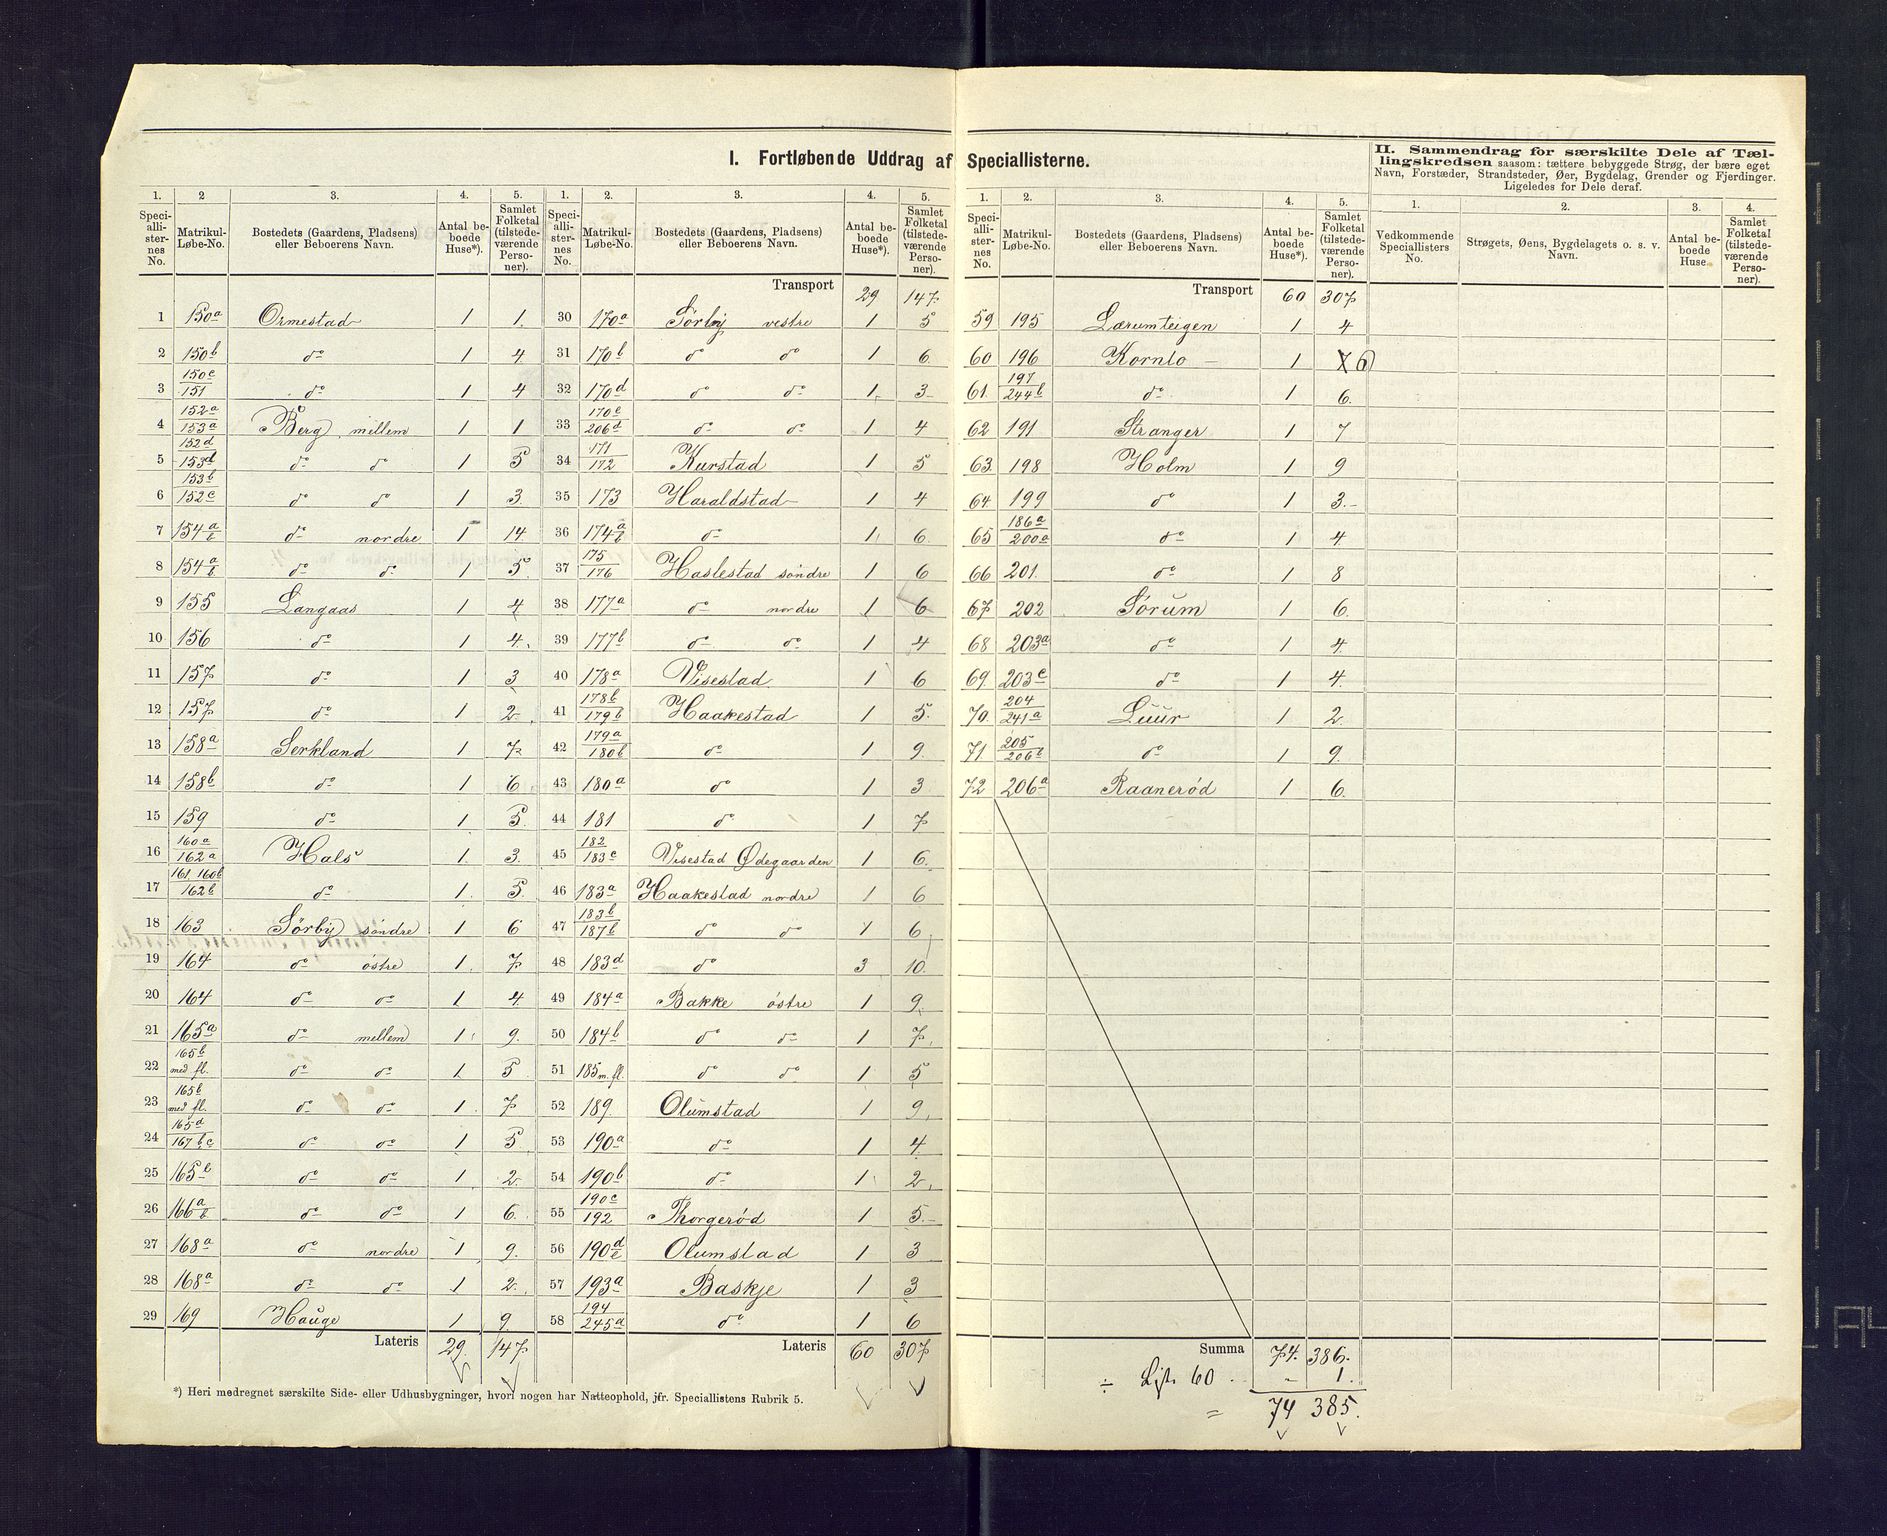 I. Fortløbende Uddrag af Speciallisterne.
II. Sammendrag for særskilte Dele af Tæl-
lingskredsen saasom: tættere bebyggede Strøg, der bære eget
Navn, Forstæder, Strandsteder, Øer, Bygdelag, Grender og Fjerdinger.
Ligeledes for Dele deraf.
1. 2 3. 4. 5.
Speci-alli-ster-nes No. Matrikul-Løbe-No. Bostedets (Gaardens, Pladsens) eller Beboerens Navn. Antal be-boede Huse*). Samlet Folketal (tilstede-værende Perso-ner).
1 150a Ormestad 1 1.
2 150b do 1 4.
3 150c/151 do 1 4
4 152a/153a Berg mellem 1 1
5 152d/153d do do 1 5
6 153b/152c do do 1 3.
7 154a/b do nordre 1 14.
8 154a/b do do 1 5.
9 155 Langaas 1 4
10 156 do 1 4.
11 157 do 1 3
12 157 do 1 2
13 158a Serkland 1 7
14 158b do 1 6
15 159 do 1 5.
16 160a/162a Hals 1. 3.
17 161 160b/162b do 1. 5.
18 163 Sørby søndre 1 6
19 164 do østre 1. 7
20 164 do do 1 4.
21 165a do mellem 1 9.
22 165b med fl. do do 1. 5
23 165b med fl. do do 1 7
24 165d/167bc do do 1 5
25 165e do do 1 2
26 166a/b do do 1 6.
27 168a do nordre 1 9.
28 168a do do 1 2
29 169 Hauge 1 9.
Lateris 29. 147
*) Heri medregnet særskilte Side- eller Udhusbygninger, hvori nogen har Natteophold, jfr. Speciallistens Rubrik 5.
1. 2. 3. 4. 5.
Speci-alli-ster-nes No. Matrikul-Løbe-No. Bostedets (Gaardens, Pladsens) eller Beboerens Navn. Antal be-boede Huse*). Samlet Folketal (tilstede-værende Perso-ner).
Transport 29 147.
30 170a Sørby vestre 1 5
31 170b do do 1 6.
32 170d do do 1. 3
33 170e/206d do do 1 4
34 171/172 Kurstad 1 5
35 173 Haraldstad 1 4
36 174a/b do 1 6.
37 175/176 Haslestad søndre 1 6
38 177a do nordre 1 6
39 177b do do 1 4
40 178a Visestad 1 6
41 178b/179b Haakestad 1 5.
42 179a/180b do 1 9.
43 180a do 1 3
44 181 do 1 7
45 182/183c Visestad Ødegaarden 1 6.
46 183a Haakestad nordre 1 6
47 183b/187b do do 1 6
48 183d do 3 10.
49 184a Bakke østre 1 9.
50 184b do do 1 7.
51 185 m. fl. do do 1 5
52 189. Olumstad 1 9.
53 190a do 1 4.
54 190b do 1 2.
55 190c/192 Thorgerød 1 5.
56 190d/e Olumstad 1 3
57 193a Baskje 1 3
58 194/245a do 1 6
Lateris 60 307
1. 2. 3. 4. 5.
Speci-alli-ster-nes No. Matrikul-Løbe-No. Bostedets (Gaardens, Pladsens) eller Beboerens Navn. Antal be-boede Huse*). Samlet Folketal (tilstede-værende Perso-ner).
Transport 60 307
59 195 Lærumteigen 1 4
60 196 Kornlo 1 7 6
61. 197/244b do 1 6.
62 191 Stranger 1 7
63. 198 Holm 1 9
64. 199 do 1 3.
65 186a/200a do 1 4.
66 201. do 1 8
67 202 Sørum 1 6.
68 203a do 1 4.
69. 203c do 1 4.
70. 204/241a Luur 1 2.
71. 205/206b do 1 9.
72 206a Raanerød 1 6.
Summa 74. 386.
÷ Liste 60 . . „ 1.
= 74 385.
1. 2. 3. 4.
Vedkommende Speciallisters No. Strøgets, Øens, Bygdelagets o. s. v. Navn. Antal be-boede Huse. Samlet Folketal (tilstede-værende Perso-ner).